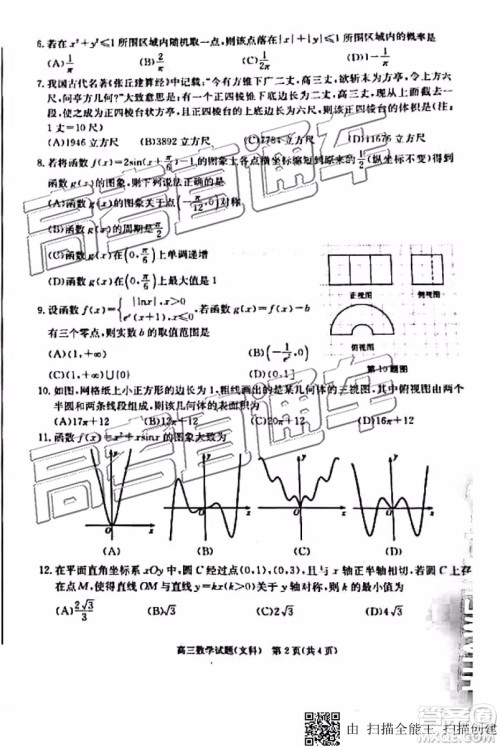 6. 若在 x²+y²≤1 所围区域内随机取一点,则该点落在|x|+|y|≤1 所围区域内的概率是
(A)1/π (B)2/π (C)1/2π (D)1-1/π
7. 我国古代名著《张丘建算经》中记载:“今有方锥下广二丈,高三丈,欲斩末为方亭,令上方六
尺,问亭方几何?”大致意思是:有一个正四棱锥下底边长为二丈,高三丈,现从上面截去一
段,使之成为正四棱台状方亭,且正四棱台的上底边长为六尺,则该正四棱台的体积是(注:
1丈=10尺)
(A)1946立方尺 (B)3892立方尺 (C)7784立方尺 (D)11676立方尺
8. 若将函数 f(x)=2sin(x+π/6)-1的图象上各点横坐标缩短到原来的1/2(纵坐标不变)得到
函数g(x)的图象,则下列说法正确的是
(A)函数g(x)的图象关于点(-π/12,0)对称
(B)函数g(x)的周期是π/2
(C)函数g(x)在(0,π/6)上单调递增
(D)函数g(x)在(0,π/6)上最大值是1
正视图 侧视图
俯视图
第10题图
9. 设函数f(x)={|lnx|,x>0
eˣ(x+1),x≤0 ,若函数g(x)=f(x)-b
有三个零点,则实数b的取值范围是
(A)(1,+∞) (B)(-1/e²,0)
(C)(1,+∞)∪{0} (D)(0,1]
10. 如图,网格纸上小正方形的边长为1,粗线画出的是某几何体的三视图,其中俯视图由两个
半圆和两条线段组成,则该几何体的表面积为
(A)17π+12 (B)12π+12 (C)20π+12 (D)16π+12
11. 函数f(x)=x²+xsinx的图象大致为
(A) (B) (C) (D)
12. 在平面直角坐标系xOy中,圆C经过点(0,1),(0,3),且与x轴正半轴相切,若圆C上存
在点M,使得直线OM与直线y=kx(k>0)关于y轴对称,则k的最小值为
(A)2√3/3 (B)√3 (C)2√3 (D)4√3
高三数学试题(文科) 第2页(共4页)
高考直通车
高考直通车
由 扫描全能王 扫描创建